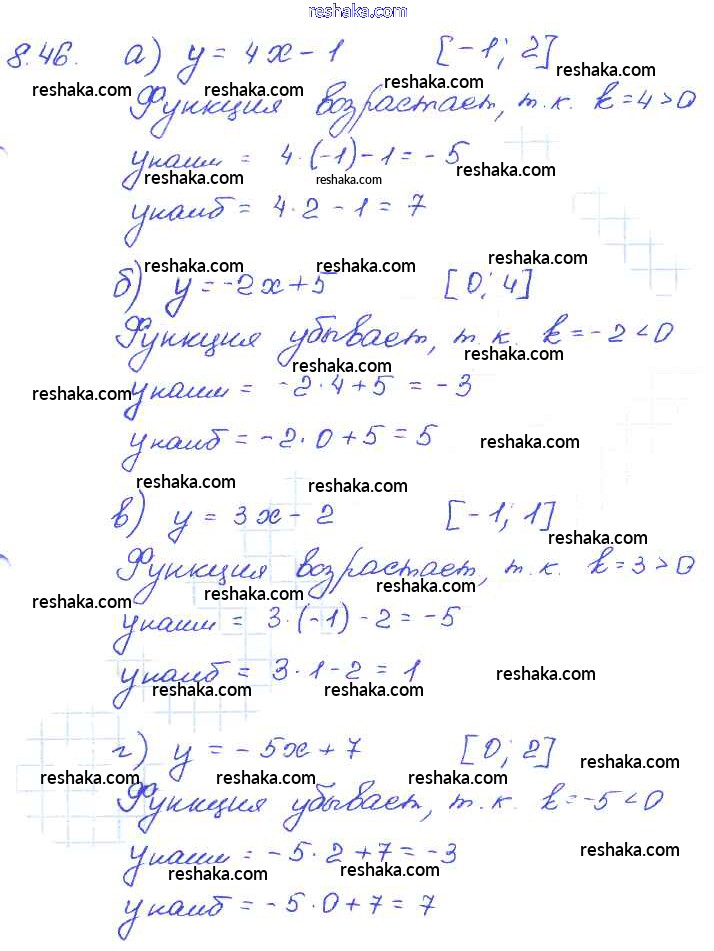 reshaka.com
8.46. а) y = 4x - 1 [-1; 2]
reshaka.com reshaka.com reshaka.com reshaka.com
Функция возрастает, т.к. k = 4 > 0
yнаим = 4·(-1) - 1 = -5
reshaka.com reshaka.com reshaka.com
yнаиб = 4·2 - 1 = 7
reshaka.com reshaka.com reshaka.com
б) y = -2x + 5 [0; 4]
Функция убывает, т.к. k = -2 < 0
reshaka.com reshaka.com
yнаим = -2·4 + 5 = -3
reshaka.com reshaka.com
yнаиб = -2·0 + 5 = 5
reshaka.com
reshaka.com reshaka.com
в) y = 3x - 2 [-1; 1]
reshaka.com
Функция возрастает, т.к. k = 3 > 0
reshaka.com reshaka.com reshaka.com
yнаим = 3·(-1) - 2 = -5
yнаиб = 3·1 - 2 = 1
reshaka.com reshaka.com reshaka.com
г) y = -5x + 7 [0; 2]
reshaka.com
reshaka.com reshaka.com reshaka.com
Функция убывает, т.к. k = -5 < 0
yнаим = -5·2 + 7 = -3
reshaka.com reshaka.com reshaka.com
yнаиб = -5·0 + 7 = 7